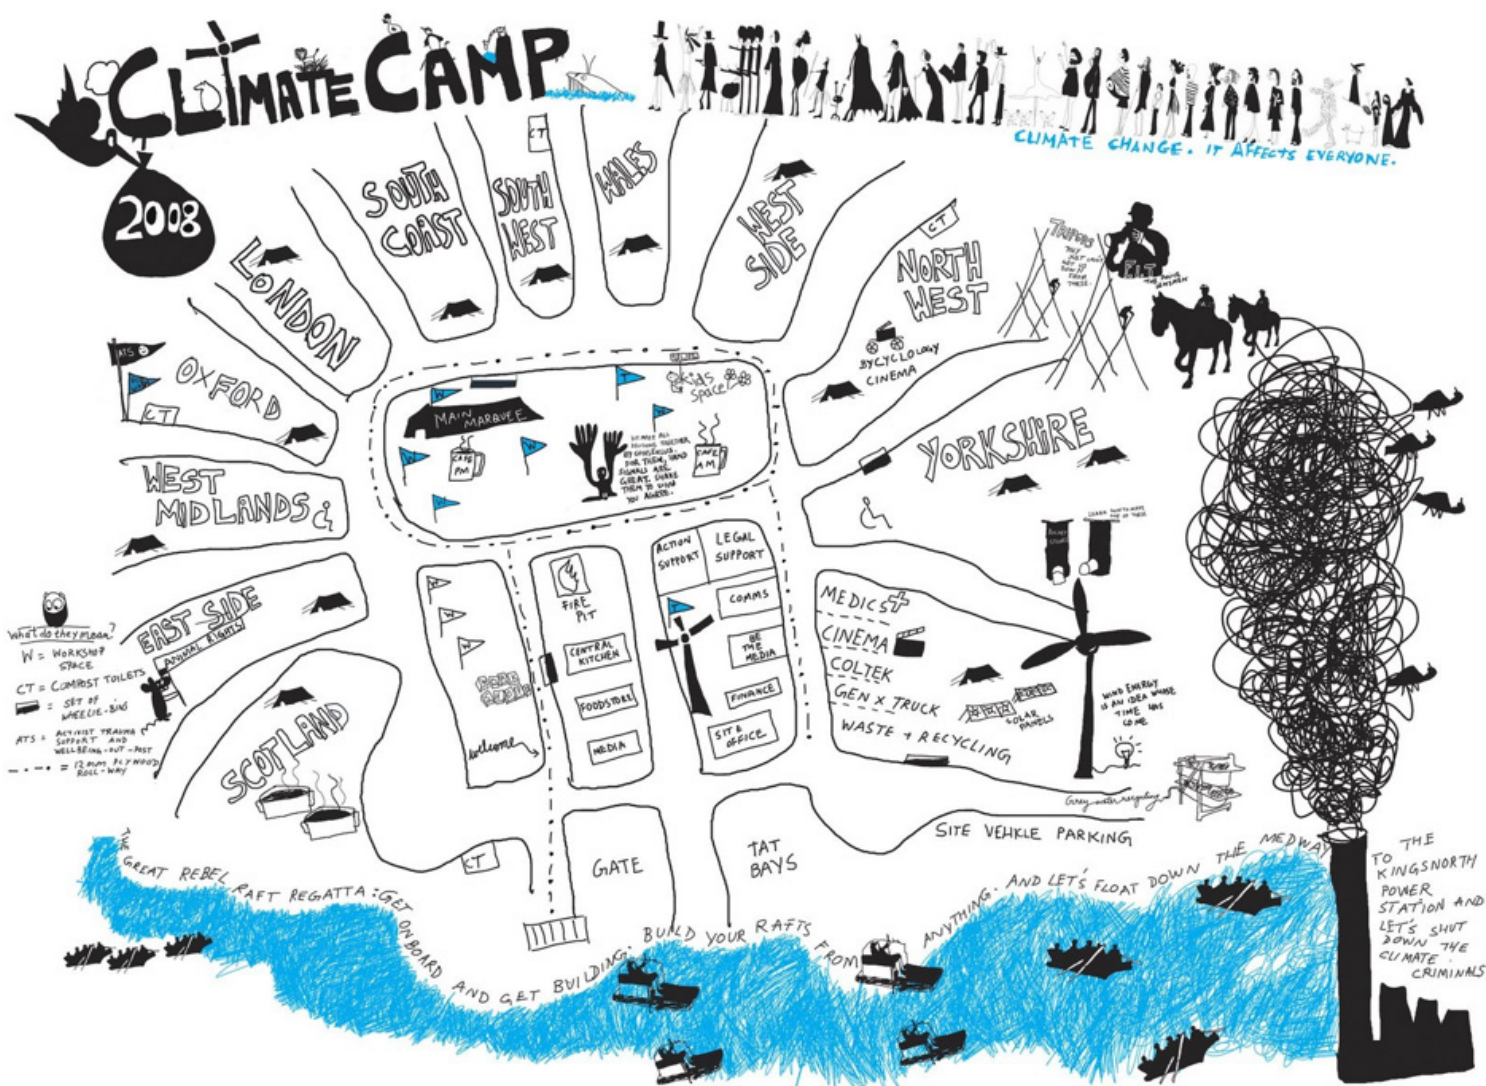 CLIMATE CAMP
2008
CLIMATE CHANGE. IT AFFECTS EVERYONE.
SOUTH
COAST
CT
SOUTH
WEST
WALES
WEST
SIDE
CT
NORTH
WEST
BYCYCLOLOGY
CINEMA
TRIPODS
THEY
FROM
THESE.
F.I.T
LONDON
ATS
W
OXFORD
CT
WEST
MIDLANDS
W
MAIN
MARQUEE
W
CAFE
PM
W
W
T
W
KIDS
SPACE
WE MEET ALL
DECISIONS TOGETHER
BY CONSENSUS.
FOR THEM, HAND
SIGNALS ARE
GREAT. SHAKE
THEM TO SHOW
YOU AGREE.
CAFE
AM
YORKSHIRE
EAST SIDE
ANIMAL RIGHTS
SCOTLAND
What do they mean?
W = WORKSHOP
SPACE
CT = COMPOST TOILETS
= SET OF
WHEELIE-BINS
ATS = ACTIVIST TRAUMA
SUPPORT AND
WELLBEING-OUT-POST
= 12mm PLYWOOD
ROLL-WAY
W
W
W
welcome
FIRE
PIT
CENTRAL
KITCHEN
FOODSTORE
MEDIA
ACTION
SUPPORT
LEGAL
SUPPORT
T
COMMS
BE
THE
MEDIA
FINANCE
SITE
OFFICE
MEDICS
CINEMA
COLTEK
GEN X TRUCK
WASTE + RECYCLING
SOLAR
PANELS
WIND ENERGY
IS AN IDEA WHOSE
TIME HAS
COME
Grey water recycling
SITE VEHICLE PARKING
CT
GATE
TAT
BAYS
THE GREAT REBEL RAFT REGATTA: GET ON BOARD AND GET BUILDING. BUILD YOUR RAFTS FROM ANYTHING. AND LET'S FLOAT DOWN THE MEDWAY
TO THE
KINGSNORTH
POWER
STATION AND
LET'S SHUT
DOWN THE
CLIMATE
CRIMINALS